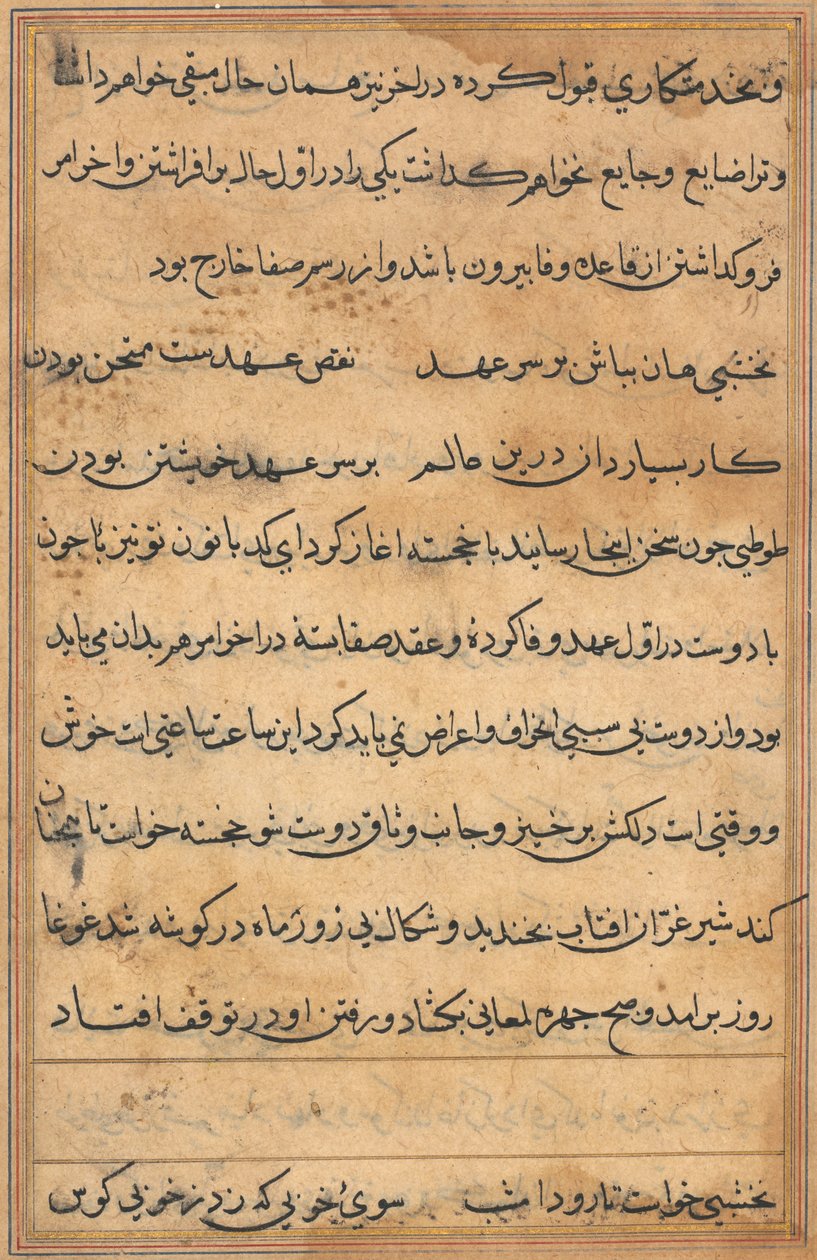 و بخدمتکاری قبول کرده در اخر نیز همان حال مبقی خواهم داشت
و ترا ضایع و جایع نخواهم کذاشت یکی را در اوّل حال برافراشتن و اخر امر
فرو کداشتن از قاعده وفا بیرون باشد و از رسم صفا خارج بود
نخشبی هان بباش بر سر عهد نقض عهدست ممتحن بودن
کار بسیار دان درین عالم بر سر عهد خویشتن بودن
طوطی جون سخن اینجا رسانید با خجسته اغاز کرد ای کدبانو تو نیز با جون
با دوست در اوّل عهد وفا کردۀ و عقد صفا بستۀ در اخر امر هم بدان می باید
بود و از دوست بی سببی انحراف و اعراض نمی باید کرد این ساعت ساعتی است خوش
و وقتی است دلکش بر خیز و جانب وثاق دوست شو خجسته خواست تا همجنان
کند شیر غرّان افتاب بخندید و شکال بی زور ماه در کوشه شد غوغا
روز برامد و صبح جهره لمعانی بکشاد و رفتن او در توقف افتاد
نخشبی خواست تا رود امشب سوی خوبی که زد ز خوبی کوس